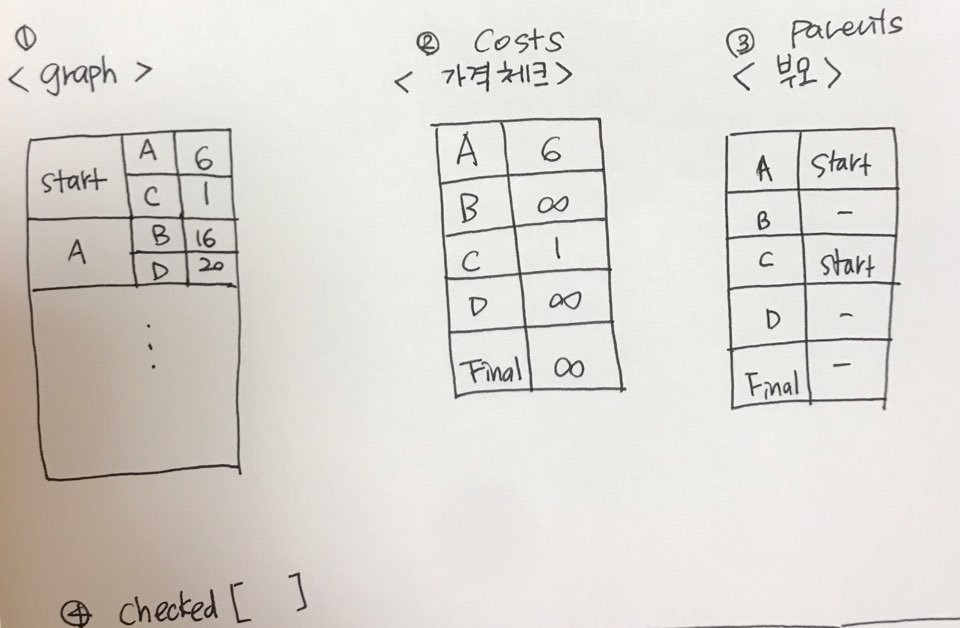 ①
< graph >
start A 6
C 1
A B 16
D 20
⋮
② Costs
< 가격체크 >
A 6
B ∞
C 1
D ∞
Final ∞
③ parents
< 부모 >
A start
B -
C start
D -
Final -
④ checked [ ]